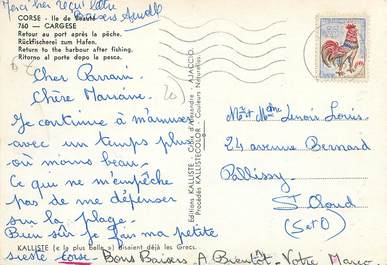 Merci hier reçu lettre
Baisers
CORSE - Ile de Beauté
760 — CARGESE
Retour au port après la pêche.
Rückfischerei zum Hafen.
Return to the harbour after fishing.
Ritorno al porto dopo la pesca.
Cher Parrain
Chère Marraine
Je continue à m'amuser
avec un temps plus
ou moins beau.
Ce qui ne m'empêche
pas de me dépenser
sur la plage.
Bien sûr je fais ma petite
KALLISTE (« la plus belle ») disaient déjà les Grecs.
sieste corse Bons Baisers A Bientôt - Votre Marco
Editions KALLISTE - AJACCIO
Procédés KALLISTECOLOR - Couleurs Naturelles
Mr et Mme Lenoir Louis
24 avenue Bernard
Pallissy
St Cloud
(S et O)